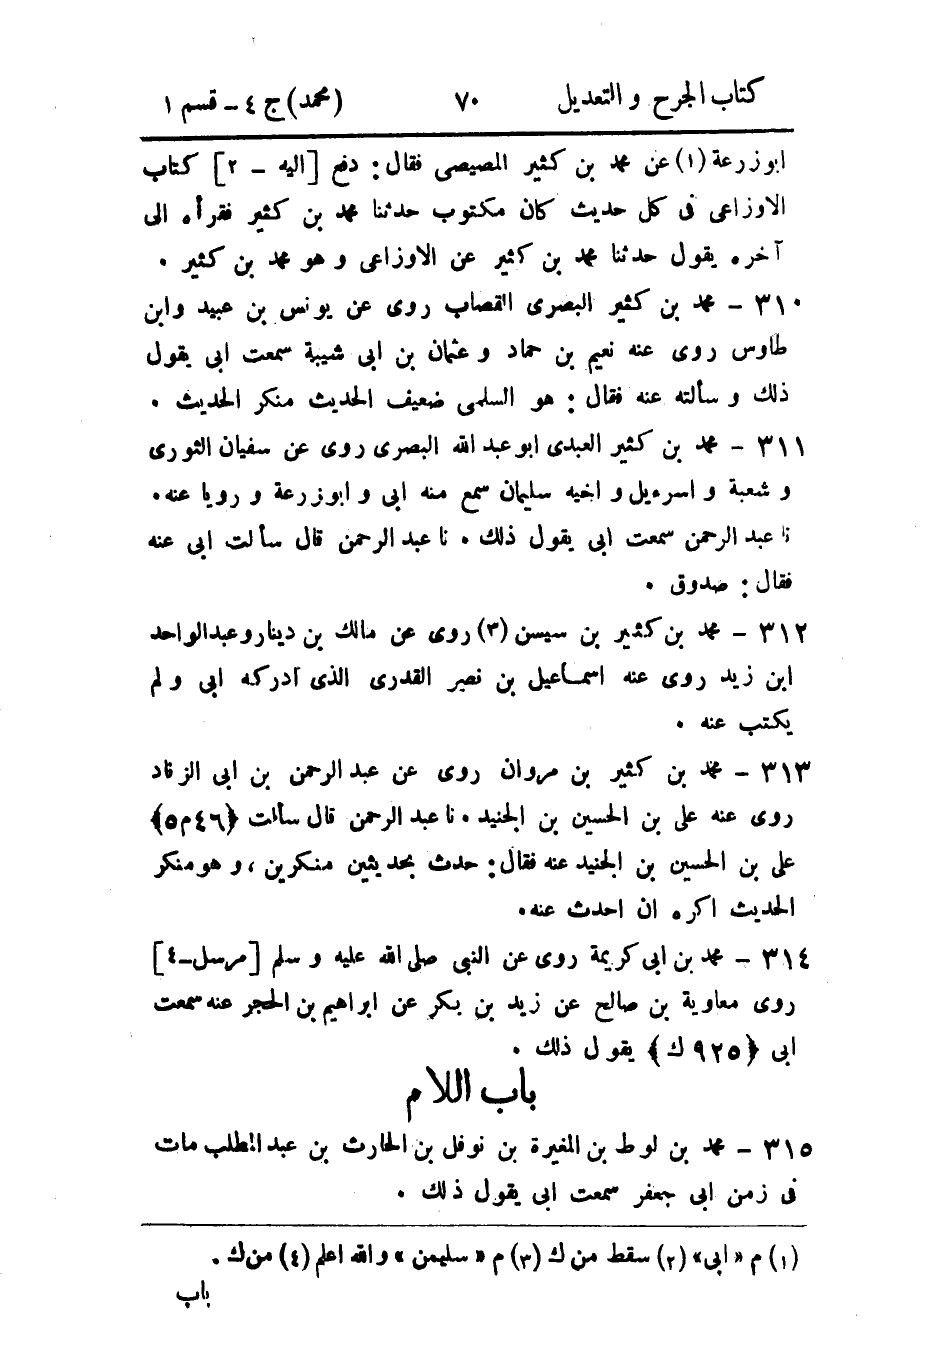 كتاب الجرح و التعديل ٧٠ (محمد) ج ٤ - قسم ١
ابو زرعة (١) عن محمد بن كثير المصيصى فقال: دفع [اليه - ٢] كتاب
الاوزاعى فى كل حديث كان مكتوب حدثنا محمد بن كثير فقرأه الى
آخره يقول حدثنا محمد بن كثير عن الاوزاعى و هو محمد بن كثير .
٣١٠ - محمد بن كثير البصرى القصاب روى عن يونس بن عبيد وابن
طاوس روى عنه نعيم بن حماد و عثمان بن ابى شيبة سمعت ابى يقول
ذلك و سألته عنه فقال: هو السلمى ضعيف الحديث منكر الحديث .
٣١١ - محمد بن كثير العبدى ابو عبد الله البصرى روى عن سفيان الثورى
و شعبة و اسرءيل و اخيه سليمان سمع منه ابى و ابو زرعة و رويا عنه.
نا عبد الرحمن سمعت ابى يقول ذلك . نا عبد الرحمن قال سألت ابى عنه
فقال: صدوق .
٣١٢ - محمد بن كثير بن سيسن (٣) روى عن مالك بن دينار وعبد الواحد
ابن زيد روى عنه اسماعيل بن نصير القدرى الذى ادركه ابى و لم
يكتب عنه .
٣١٣ - محمد بن كثير بن مروان روى عن عبد الرحمن بن ابى الزناد
روى عنه على بن الحسين بن الجنيد . نا عبد الرحمن قال سألت ﴿٤٦م٥﴾
على بن الحسين بن الجنيد عنه فقال: حدث بحديثين منكرين ، و هو منكر
الحديث اكره ان احدث عنه.
٣١٤ - محمد بن ابى كريمة روى عن النبى صلى الله عليه و سلم [مرسل - ٤]
روى معاوية بن صالح عن زيد بن بكر عن ابراهيم بن الحجر عنه سمعت
ابى ﴿٩٢٥ ك﴾ يقول ذلك .
باب اللام
٣١٥ - محمد بن لوط بن المغيرة بن نوفل بن الحارث بن عبد المطلب مات
فى زمن ابى جعفر سمعت ابى يقول ذلك .
(١) م « ابى» (٢) سقط من ك (٣) م « سليمن » والله اعلم (٤) من ك .
باب